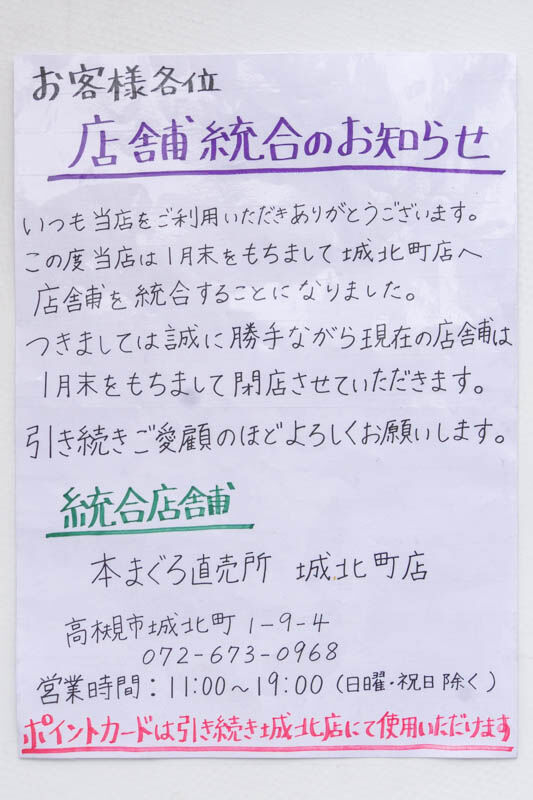 お客様各位
店舗統合のお知らせ
いつも当店をご利用いただきありがとうございます。
この度当店は1月末をもちまして城北町店へ
店舗を統合することになりました。
つきましては誠に勝手ながら現在の店舗は
1月末をもちまして閉店させていただきます。
引き続きご愛顧のほどよろしくお願いします。
統合店舗
本まぐろ直売所 城北町店
高槻市城北町1-9-4
072-673-0968
営業時間:11:00～19:00(日曜・祝日除く)
ポイントカードは引き続き城北店にて使用いただけます